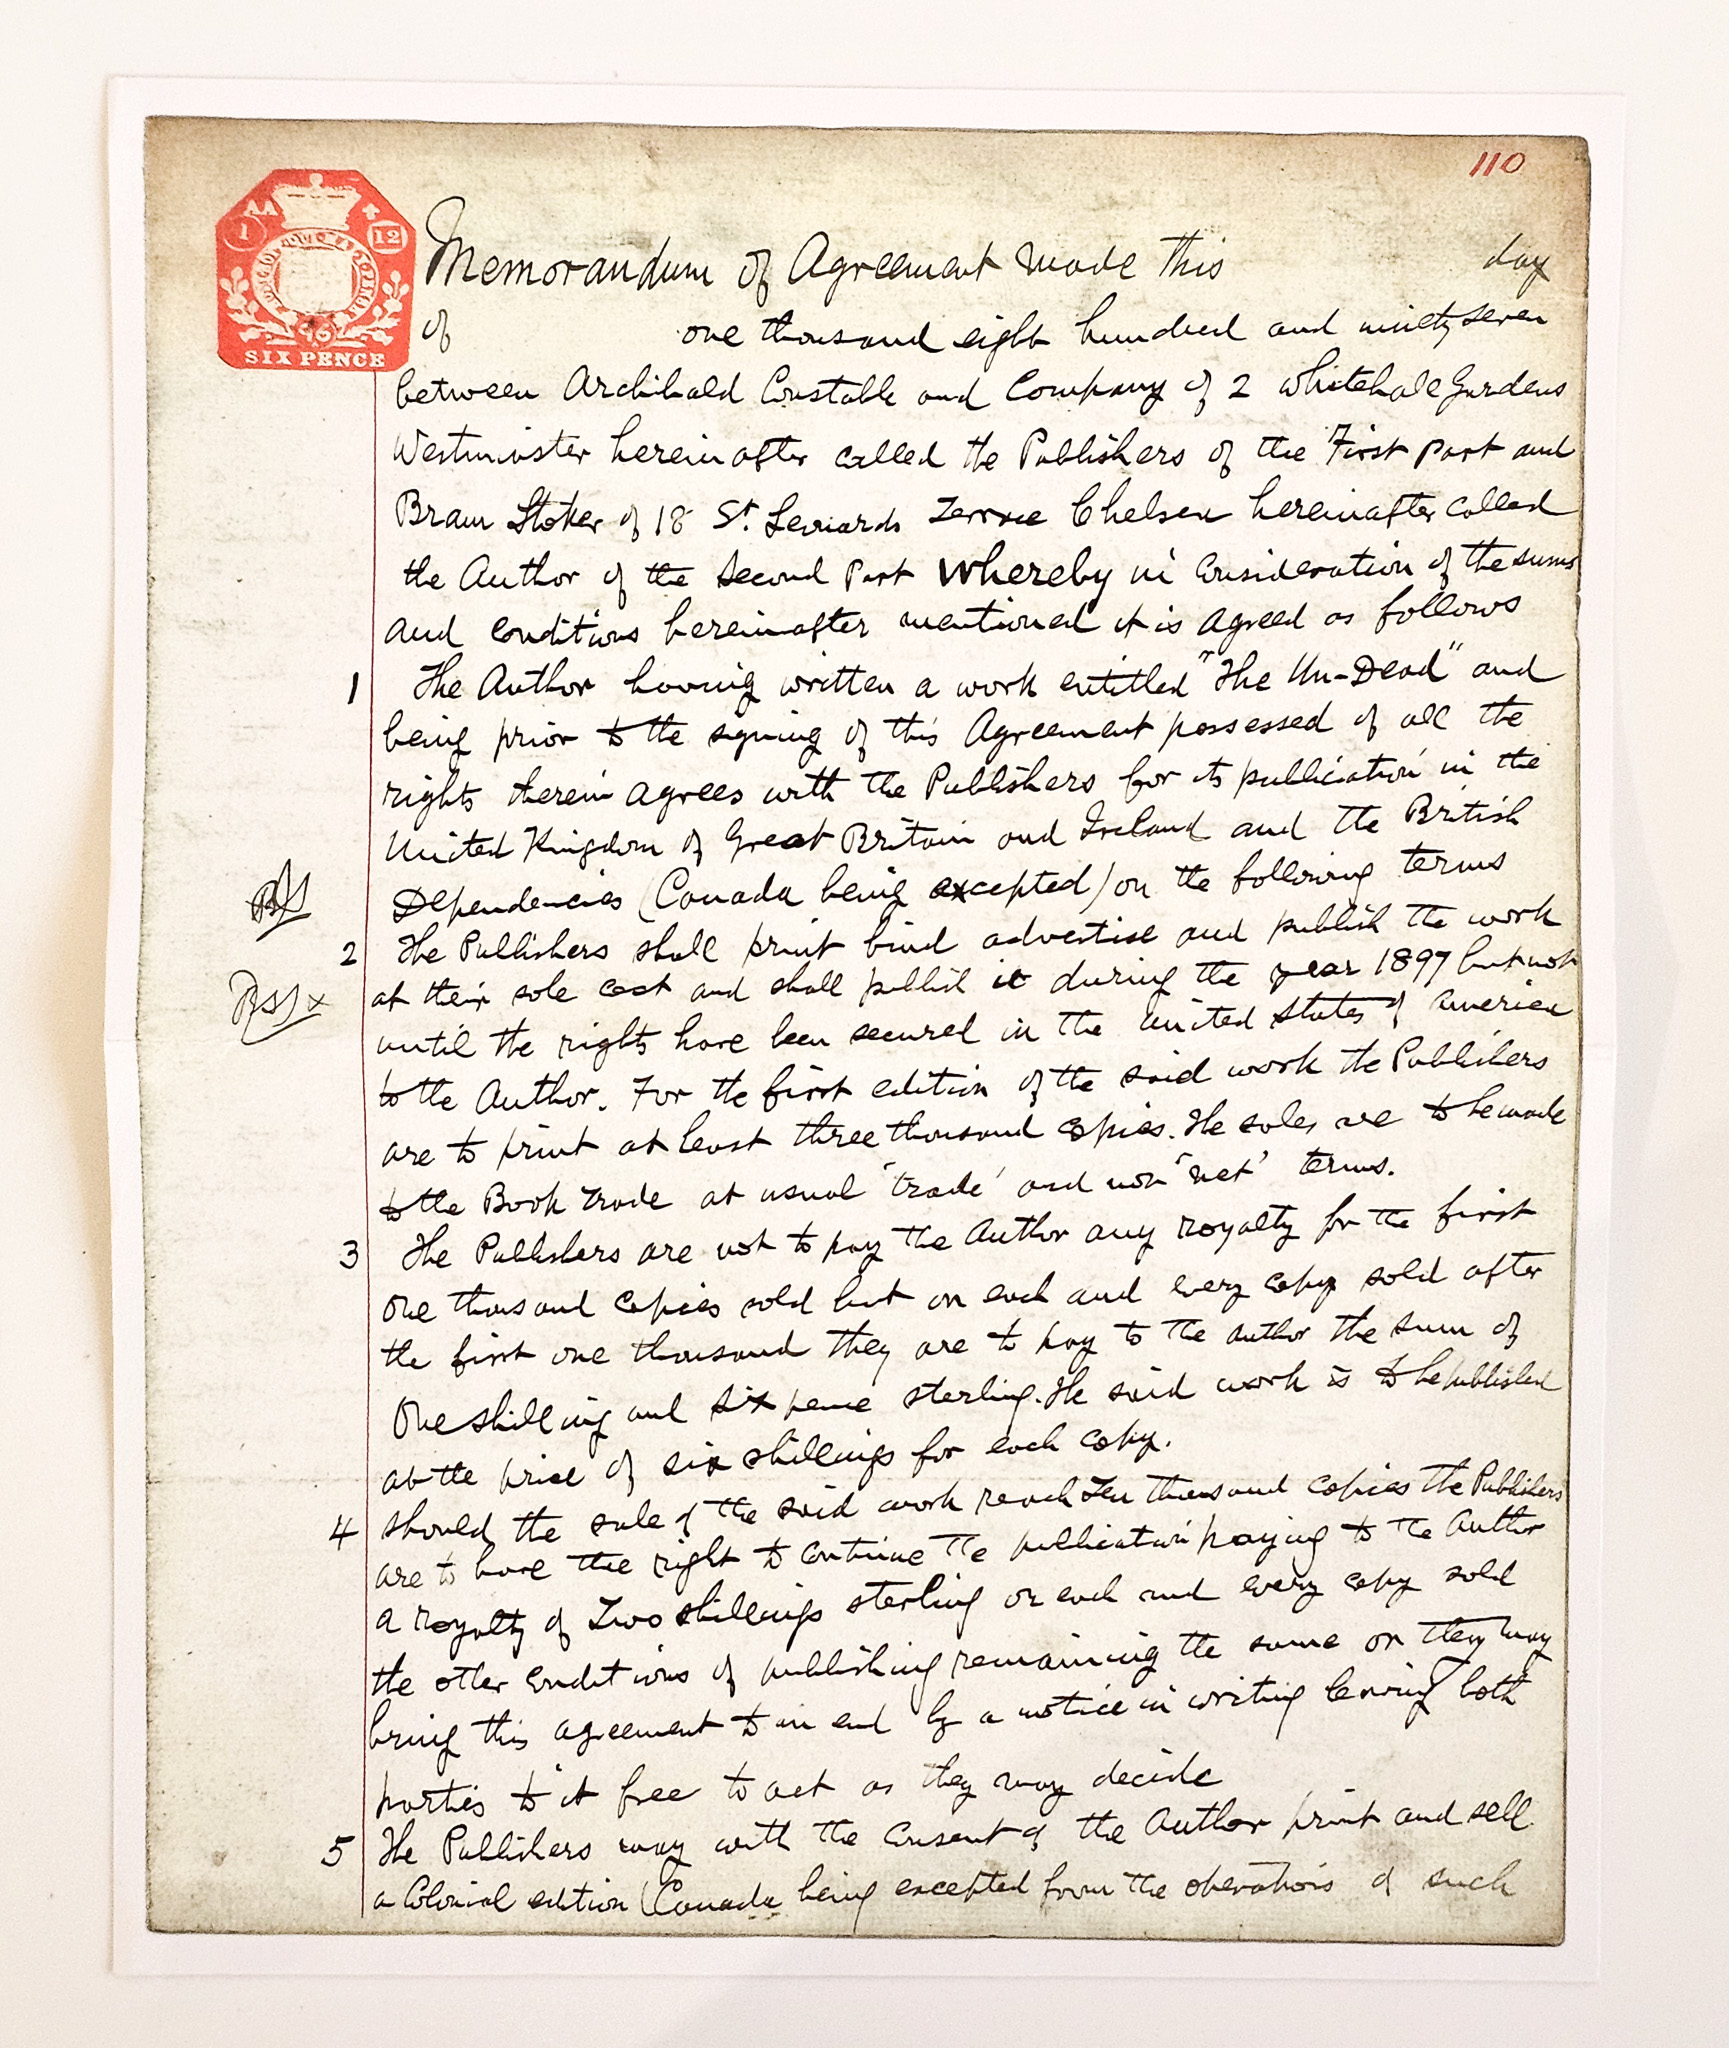 110
AA
1 12
96
SIX PENCE
Memorandum of Agreement made this day
of one thousand eight hundred and ninety seven
between Archibald Constable and Company of 2 Whitehall Gardens
Westminster hereinafter called the Publishers of the First part and
Bram Stoker of 18 St. Leonards Terrace Chelsea hereinafter called
the Author of the Second Part Whereby in Consideration of the sums
and conditions hereinafter mentioned it is agreed as follows
1 The Author having written a work entitled "The Un-Dead" and
being prior to the signing of this Agreement possessed of all the
rights therein agrees with the Publishers for its publication in the
United Kingdom of Great Britain and Ireland and the British
BS
Dependencies (Canada being excepted) on the following terms
2 The Publishers shall print bind advertise and publish the work
at their sole cost and shall publish it during the year 1897 but not
until the rights have been secured in the United States of America
to the Author. For the first edition of the said work the Publishers
are to print at least three thousand copies. The sales are to be made
to the Book Trade at usual 'trade' and non 'net' terms.
3 The Publishers are not to pay the Author any royalty for the first
one thousand copies sold but on each and every copy sold after
the first one thousand they are to pay to the Author the sum of
One shilling and six pence sterling. The said work is to be published
at the price of six shillings for each copy.
4 Should the sale of the said work reach Ten thousand copies the Publishers
are to have the right to continue the publication paying to the Author
a royalty of Two shillings sterling on each and every copy sold
the other conditions of publishing remaining the same or they may
bring this agreement to an end by a notice in writing leaving both
parties to it free to act as they may decide
5 The Publishers may with the Consent of the Author print and sell
a Colonial edition (Canada being excepted from the operations of such